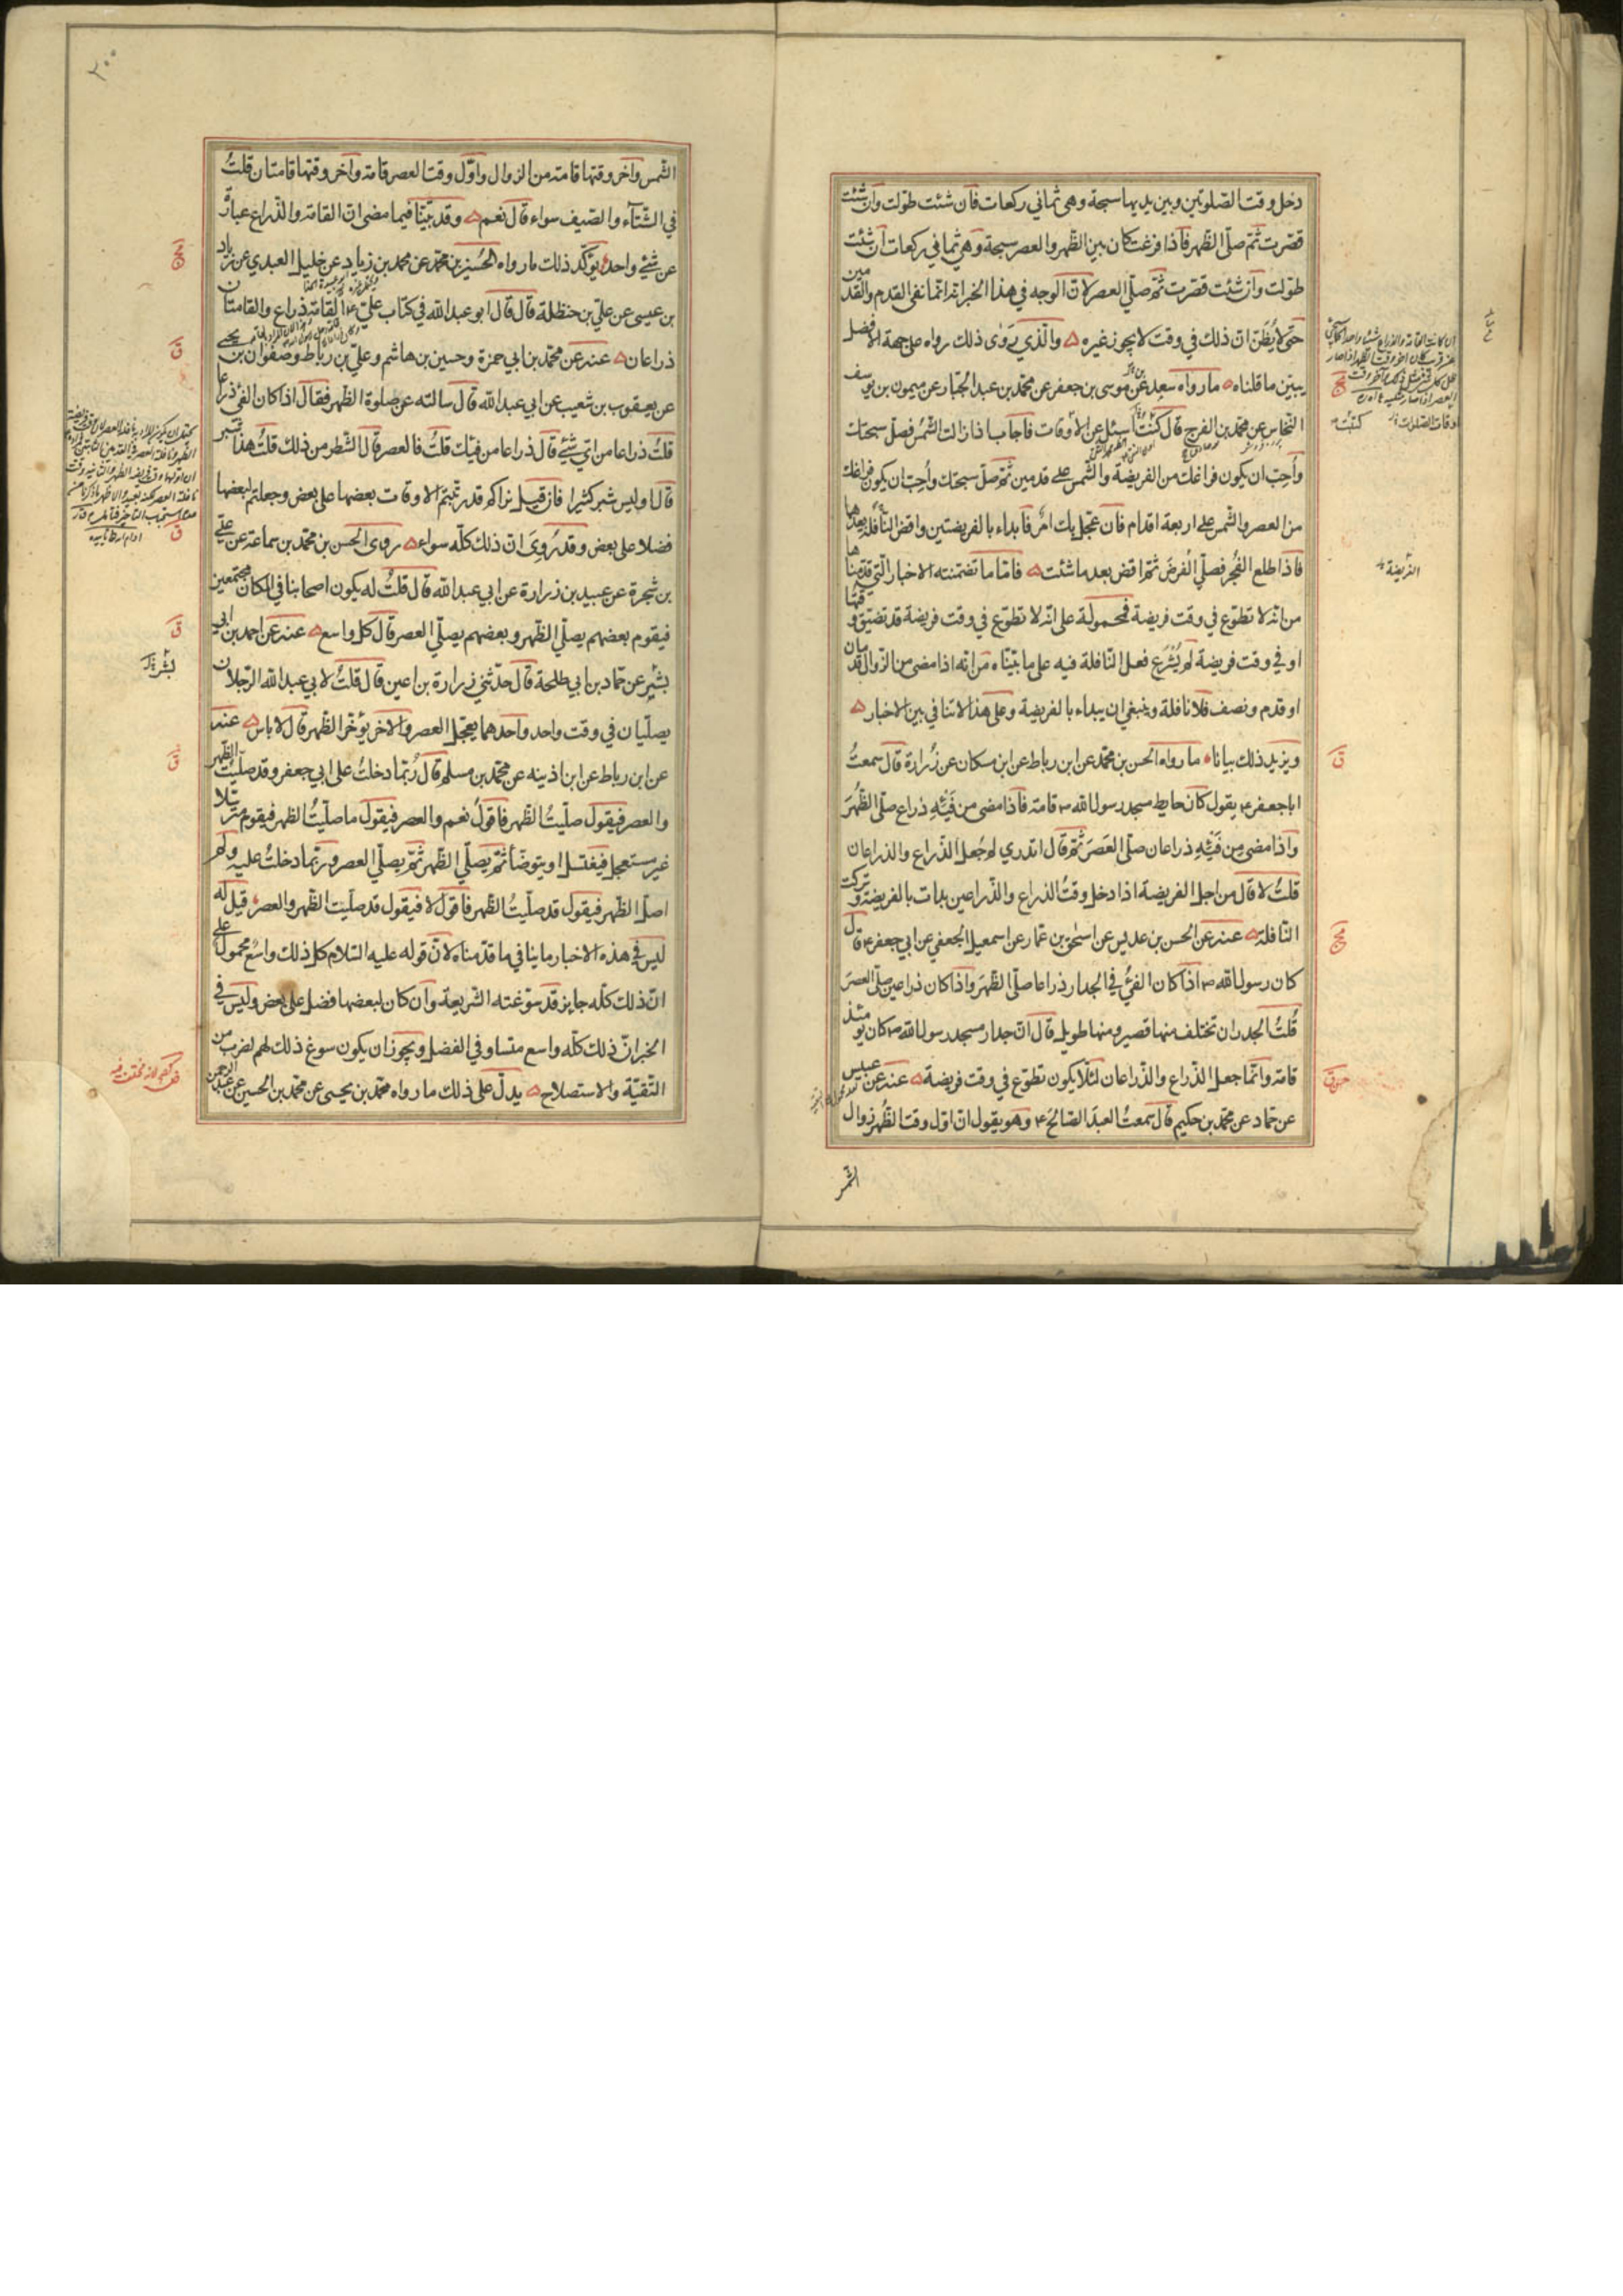 دخل وقت الصّلوتين وبين يديها سبحة وهى ثماني ركعات فان شئت طوّلت وان شئت
قصّرت ثمّ صلّ الظهر فاذا فرغت كان بين الظّهر والعصر سبحة وهي ثماني ركعات ان شئت
طوّلت وان شئت قصّرت ثمّ صلّي العصر لانّ الوجه في هذا الخبر انّه انّما نفى القدم والقدمين
حتّى لا يُظَنّ انّ ذلك في وقت لا يجوز غيره والّذي رَوَى ذلك رواه على جهة الافضل
يبيّن ما قلناه ما رواه سعد عن موسى بن جعفر عن محمّد بن عبد الجبّار عن ميمون بن يوسف
النخّاس عن محمّد بن الفرج قال كتبت اسئل عن الاوقات فاجاب اذا زالت الشّمس فصلّ سبحتك
وأُحِبّ ان يكون فراغك من الفريضة والشّمس على قدمين ثمّ صلّ سبحتك وأُحِبّ ان يكون فراغك
من العصر والشّمس على اربعة اقدام فان عجّل بك امرٌ فابداء بالفريضتين واقض النّافلة بعدهما
فاذا طلع الفجر فصلّي الفرضَ ثمّ اقض بعد ما شئت فامّا ما تضمنته الاخبار الّتي قدّمناها
من انّه لا تطوّع في وقت فريضة فمحمولة على انّه لا تطوّع في وقت فريضة قد تضيّق وقتها
او في وقت فريضة لم يُشْرَع فعل النّافلة فيه على ما بيّنّاه من انّه اذا مضى من الزّوال قدمان
او قدم ونصف فلا نافلة وينبغي ان يبداء بالفريضة وعلى هذا لا تنافي بين الاخبار
ويزيد ذلك بيانا ما رواه الحسن بن محمّد عن ابن رباط عن ابن مسكان عن زُرارة قال سمعتُ
ابا جعفر ع يقول كان حايط مسجد رسول الله ص قامة فاذا مضى من فَيْئِهِ ذراع صلّى الظُهرَ
واذا مضى من فَيْئِهِ ذراعان صلّى العَصرَ ثمّ قال اتدري لم جُعل الذّراع والذراعان
قلتُ لا قال من اجل الفريضة اذا دخل وقتُ الذراع والذّراعين بدات بالفريضة وتركت
النّافلة عنه عن الحسن بن عديس عن اسحق بن عمّار عن اسمعيل الجعفي عن ابي جعفر ع قال
كان رسول الله ص اذا كان الفيُ في الجدار ذراعا صلّى الظُهرَ واذا كان ذراعين صلّى العصرَ
قُلتُ الجدران تختلف منها قصير ومنها طويل قال انّ جدار مسجد رسول الله ص كان يومئذ
قامة وانّما جعل الذّراع والذّراعان لئلّا يكون تطوّع في وقت فريضة عنه عن عبيس
عن حمّاد عن محمّد بن حكيم قال سمعتُ العبدَ الصّالح ع وهو يقول انّ اوّل وقت الظُهر زوال
الشمس
الفريضة
الشّمس واخر وقتها قامة من الزوال واوّل وقت العصر قامة واخر وقتها قامتان قلتُ
في الشّتآء والصّيف سواء قال نعم وقد بيّنّا فيما مضى انّ القامة والذّراع عبارة
عن شئ واحد يؤكّد ذلك ما رواه الحُسين بن محمّد عن محمّد بن زياد عن خليل العبدي عن زياد
بن عيسى عن عليّ بن حنظلة قال قال ابو عبد الله في كتاب علي ع القامة ذراع والقامتان
ذراعان عنه عن محمّد بن ابي حمزة وحسين بن هاشم وعليّ بن رباط وصفوان بن يحيى
عن يعقوب بن شعيب عن ابي عبد الله قال سالته عن صلوة الظّهر فقال اذا كان الفئ ذراعا
قلتُ ذراعا من ايّ شئ قال ذراعا من فيئك قلتُ فالعصر قال الشّطر من ذلك قلتُ هذا شبر
قال اوليس شبر كثيرا فان قيل نراكم قد رتّبتم الاوقات بعضها على بعض وجعلتم لبعضها
فضلا على بعض وقد رُوِيَ انّ ذلك كلّه سواء روى الحسن بن محمّد بن سماعة عن عليّ
بن شجرة عن عبيد بن زرارة عن ابي عبد الله قال قلتُ له يكون اصحابنا في المكان مجتمعين
فيقوم بعضهم يصلّي الظّهر وبعضهم يصلّي العصر قال كل واسع عنه عن احمد بن ابي
بشير عن حمّاد بن ابي طلحة قال حدّثني زرارة بن اعين قال قلتُ لابي عبد الله الرّجلان
يصلّيان في وقت واحد واحدهما يعجّل العصر والاخر يؤخّر الظّهر قال لا باس عنه
عن ابن رباط عن ابن اذينه عن محمّد بن مسلم قال رُبّما دخلتُ على ابي جعفر وقد صلّيتُ الظّهر
والعصر فيقول صلّيتُ الظّهر فاقولُ نعم والعصر فيقول ما صلّيتُ الظهر فيقوم مترسّلا
غير مستعجل فيغتسل او يتوضّأ ثمّ يصلّي الظّهر ثمّ يصلّي العصر وربّما دخلتُ عليه ولم
اصلّ الظّهر فيقول قد صلّيتُ الظّهر فاقول لا فيقول قد صلّيت الظّهر والعصر قيل له
ليس في هذه الاخبار ما ينافي ما قدّمناه لانّ قوله عليه السّلام كل ذلك واسع محمول على
انّ ذلك كلّه جايز قد سوّغته الشّريعة وان كان لبعضها فضل على بعض وليس في
الخبر انّ ذلك كلّه واسع متساو في الفضل ويجوز ان يكون سوغ ذلك لهم لضرب من
التّقيّة والاستصلاح يدلّ على ذلك ما رواه محمّد بن يحيى عن محمّد بن الحسين عن عبد الرحمن